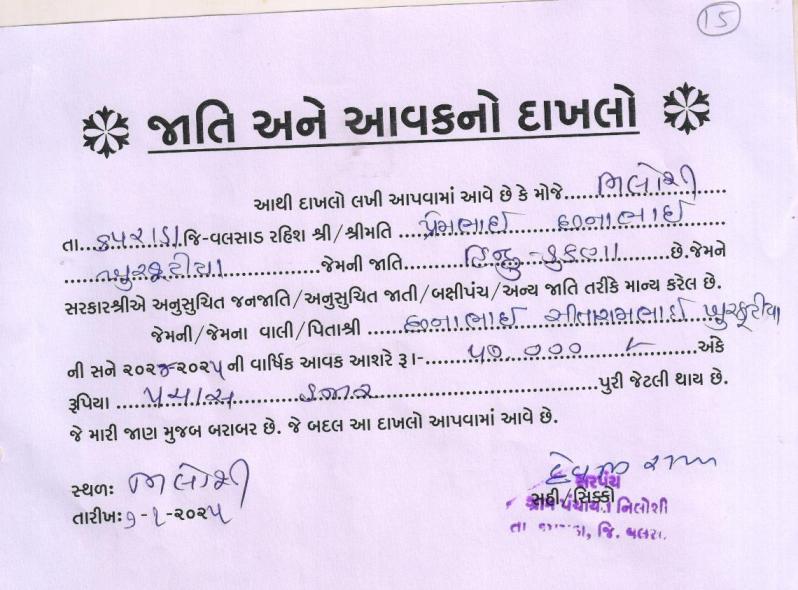 15
જાતિ અને આવકનો દાખલો
આથી દાખલો લખી આપવામાં આવે છે કે મોજે ... નિલોશી
તા... કપરાડા. જિ-વલસાડ રહિશ શ્રી/શ્રીમતિ ... પ્રેમભાઈ છનાભાઈ
ખુરકુટીયા ... જેમની જાતિ ... હિન્દુ-કુકણા ... છે.જેમને
સરકારશ્રીએ અનુસુચિત જનજાતિ/અનુસુચિત જાતી/બક્ષીપંચ/અન્ય જાતિ તરીકે માન્ય કરેલ છે.
જેમની/જેમના વાલી/પિતાશ્રી ... છનાભાઈ સીતારામભાઈ ખુરકુટીયા
ની સને ૨૦૨૪-૨૦૨૫ ની વાર્ષિક આવક આશરે રૂા.- ... ૫૦,૦૦૦ /- ... અંકે
રૂપિયા ... પચાસ હજાર ... પુરી જેટલી થાય છે.
જે મારી જાણ મુજબ બરાબર છે. જે બદલ આ દાખલો આપવામાં આવે છે.
સ્થળઃ નિલોશી
તારીખઃ ૧-૮-૨૦૨૫
સહી/સિક્કો
સરપંચ
ગ્રામ પંચાયત નિલોશી
તા. જિ. વલસા.